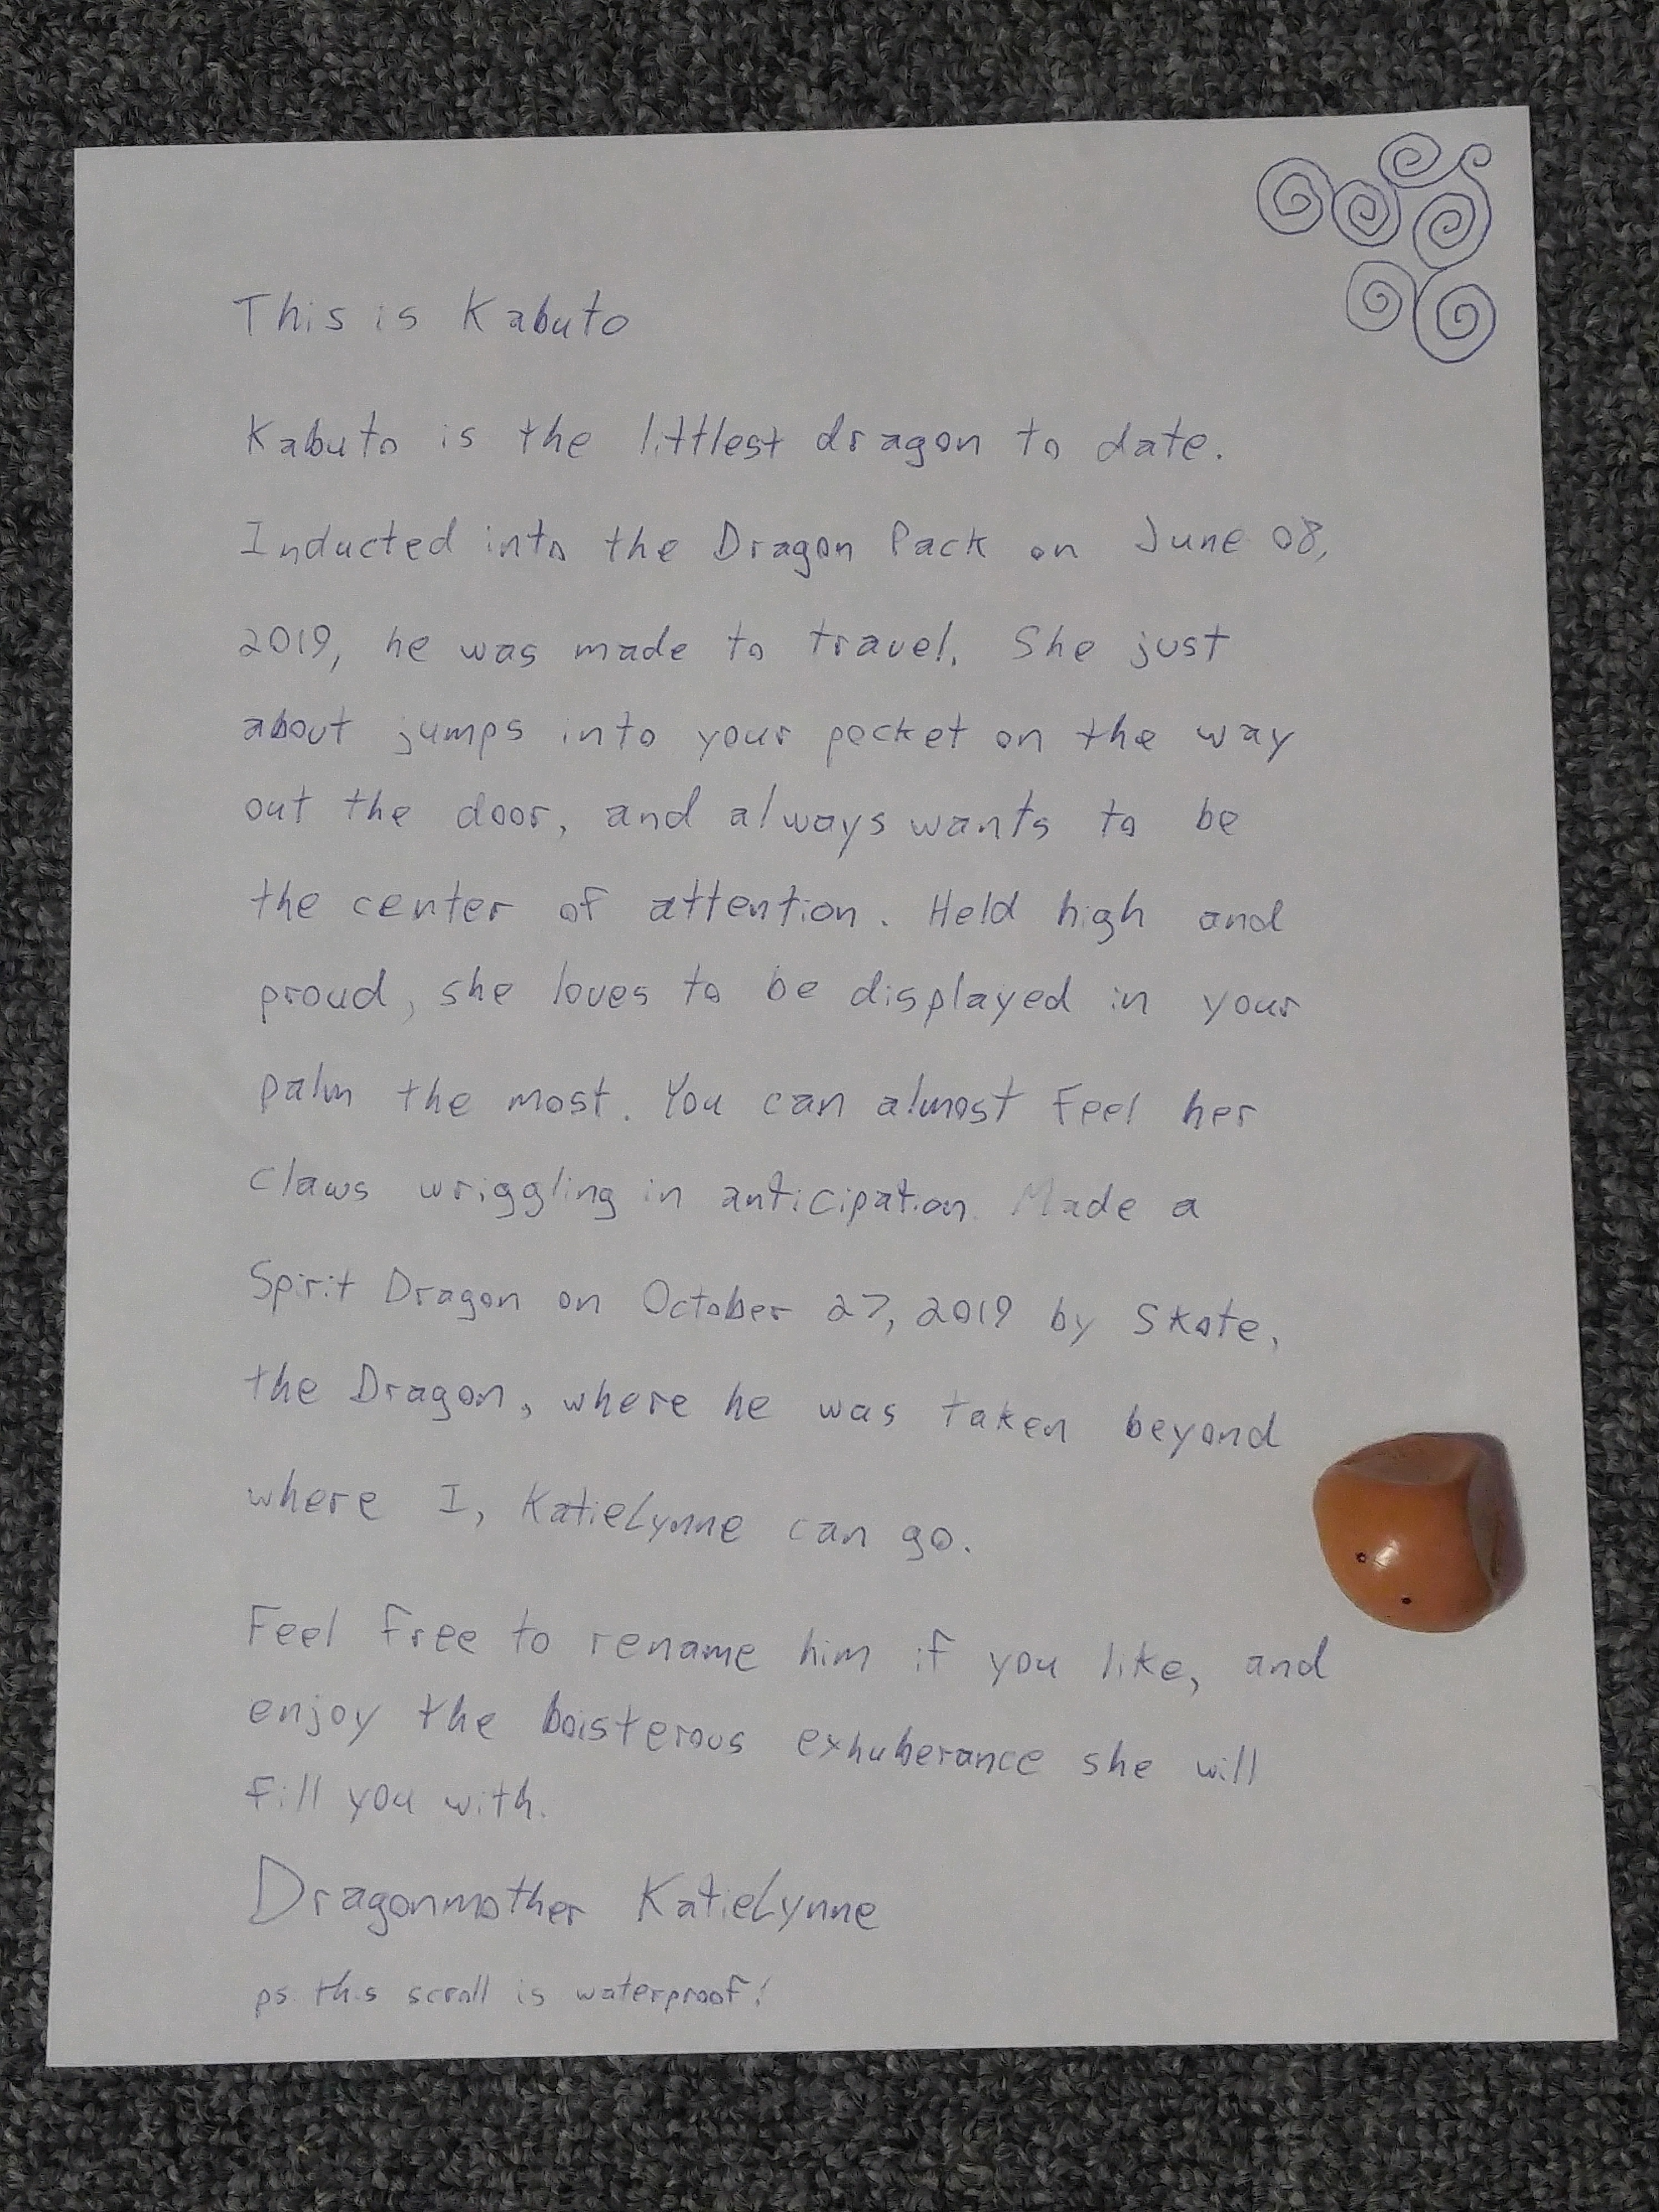 This is Kabuto
Kabuto is the littlest dragon to date.
Inducted into the Dragon Pack on June 08,
2019, he was made to travel. She just
about jumps into your pocket on the way
out the door, and always wants to be
the center of attention. Held high and
proud, she loves to be displayed in your
palm the most. You can almost feel her
claws wriggling in anticipation. Made a
Spirit Dragon on October 27, 2019 by Skate,
the Dragon, where he was taken beyond
where I, KatieLynne can go.
Feel free to rename him if you like, and
enjoy the boisterous exhuberance she will
fill you with.
Dragonmother KatieLynne
ps this scroll is waterproof!